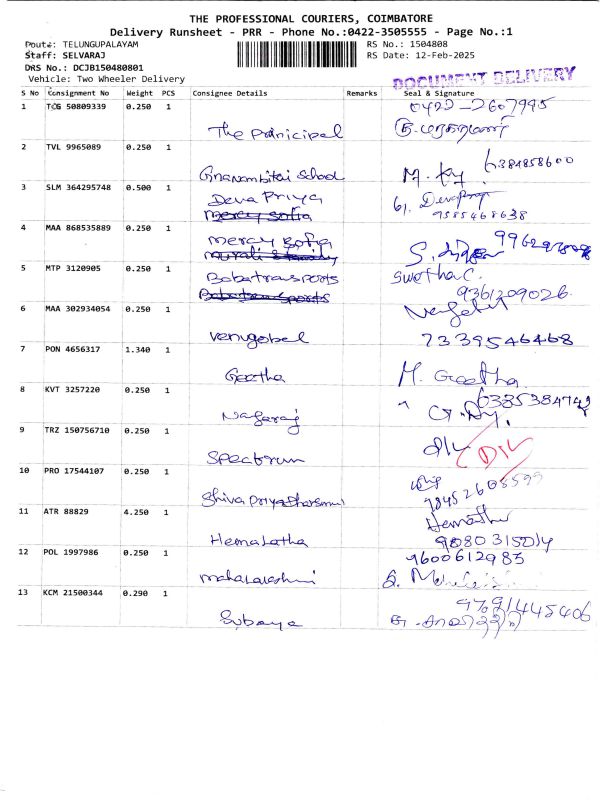 THE PROFESSIONAL COURIERS, COIMBATORE
Delivery Runsheet - PRR - Phone No.:0422-3505555 - Page No.:1
Route: TELUNGUPALAYAM
RS No.: 1504808
Staff: SELVARAJ
RS Date: 12-Feb-2025
DRS No.: DCJB150480801
Vehicle: Two Wheeler Delivery
DOCUMENT DELIVERY
S No Consignment No Weight PCS Consignee Details Remarks Seal & Signature
1 TCG 50809339 0.250 1
0422-2607995
The Prinicipal
2 TVL 9965089 0.250 1
6384858600
Gnanambikai School
3 SLM 364295748 0.500 1
Deva Priya
mercy sofia
9585468638
4 MAA 868535889 0.250 1
mercy sofia
5 MTP 3120905 0.250 1
Babatransports
Swetha C.
9361209026.
6 MAA 302934054 0.250 1
Venugobal
7339546468
7 PON 4656317 1.340 1
Geetha
M. Geetha
8 KVT 3257220 0.250 1
Nagaraj
9 TRZ 150756710 0.250 1
D/L
Spectrum
10 PRO 17544107 0.250 1
11 ATR 88829 4.250 1
Hemalatha
12 POL 1997986 0.250 1
9600612983
mahalakshmi
13 KCM 21500344 0.290 1
9791445406
Subaya